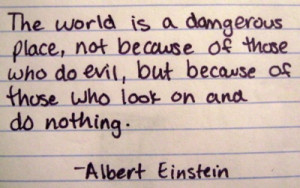 The world is a dangerous
place, not because of those
who do evil, but because of
those who look on and
do nothing.
-Albert Einstein